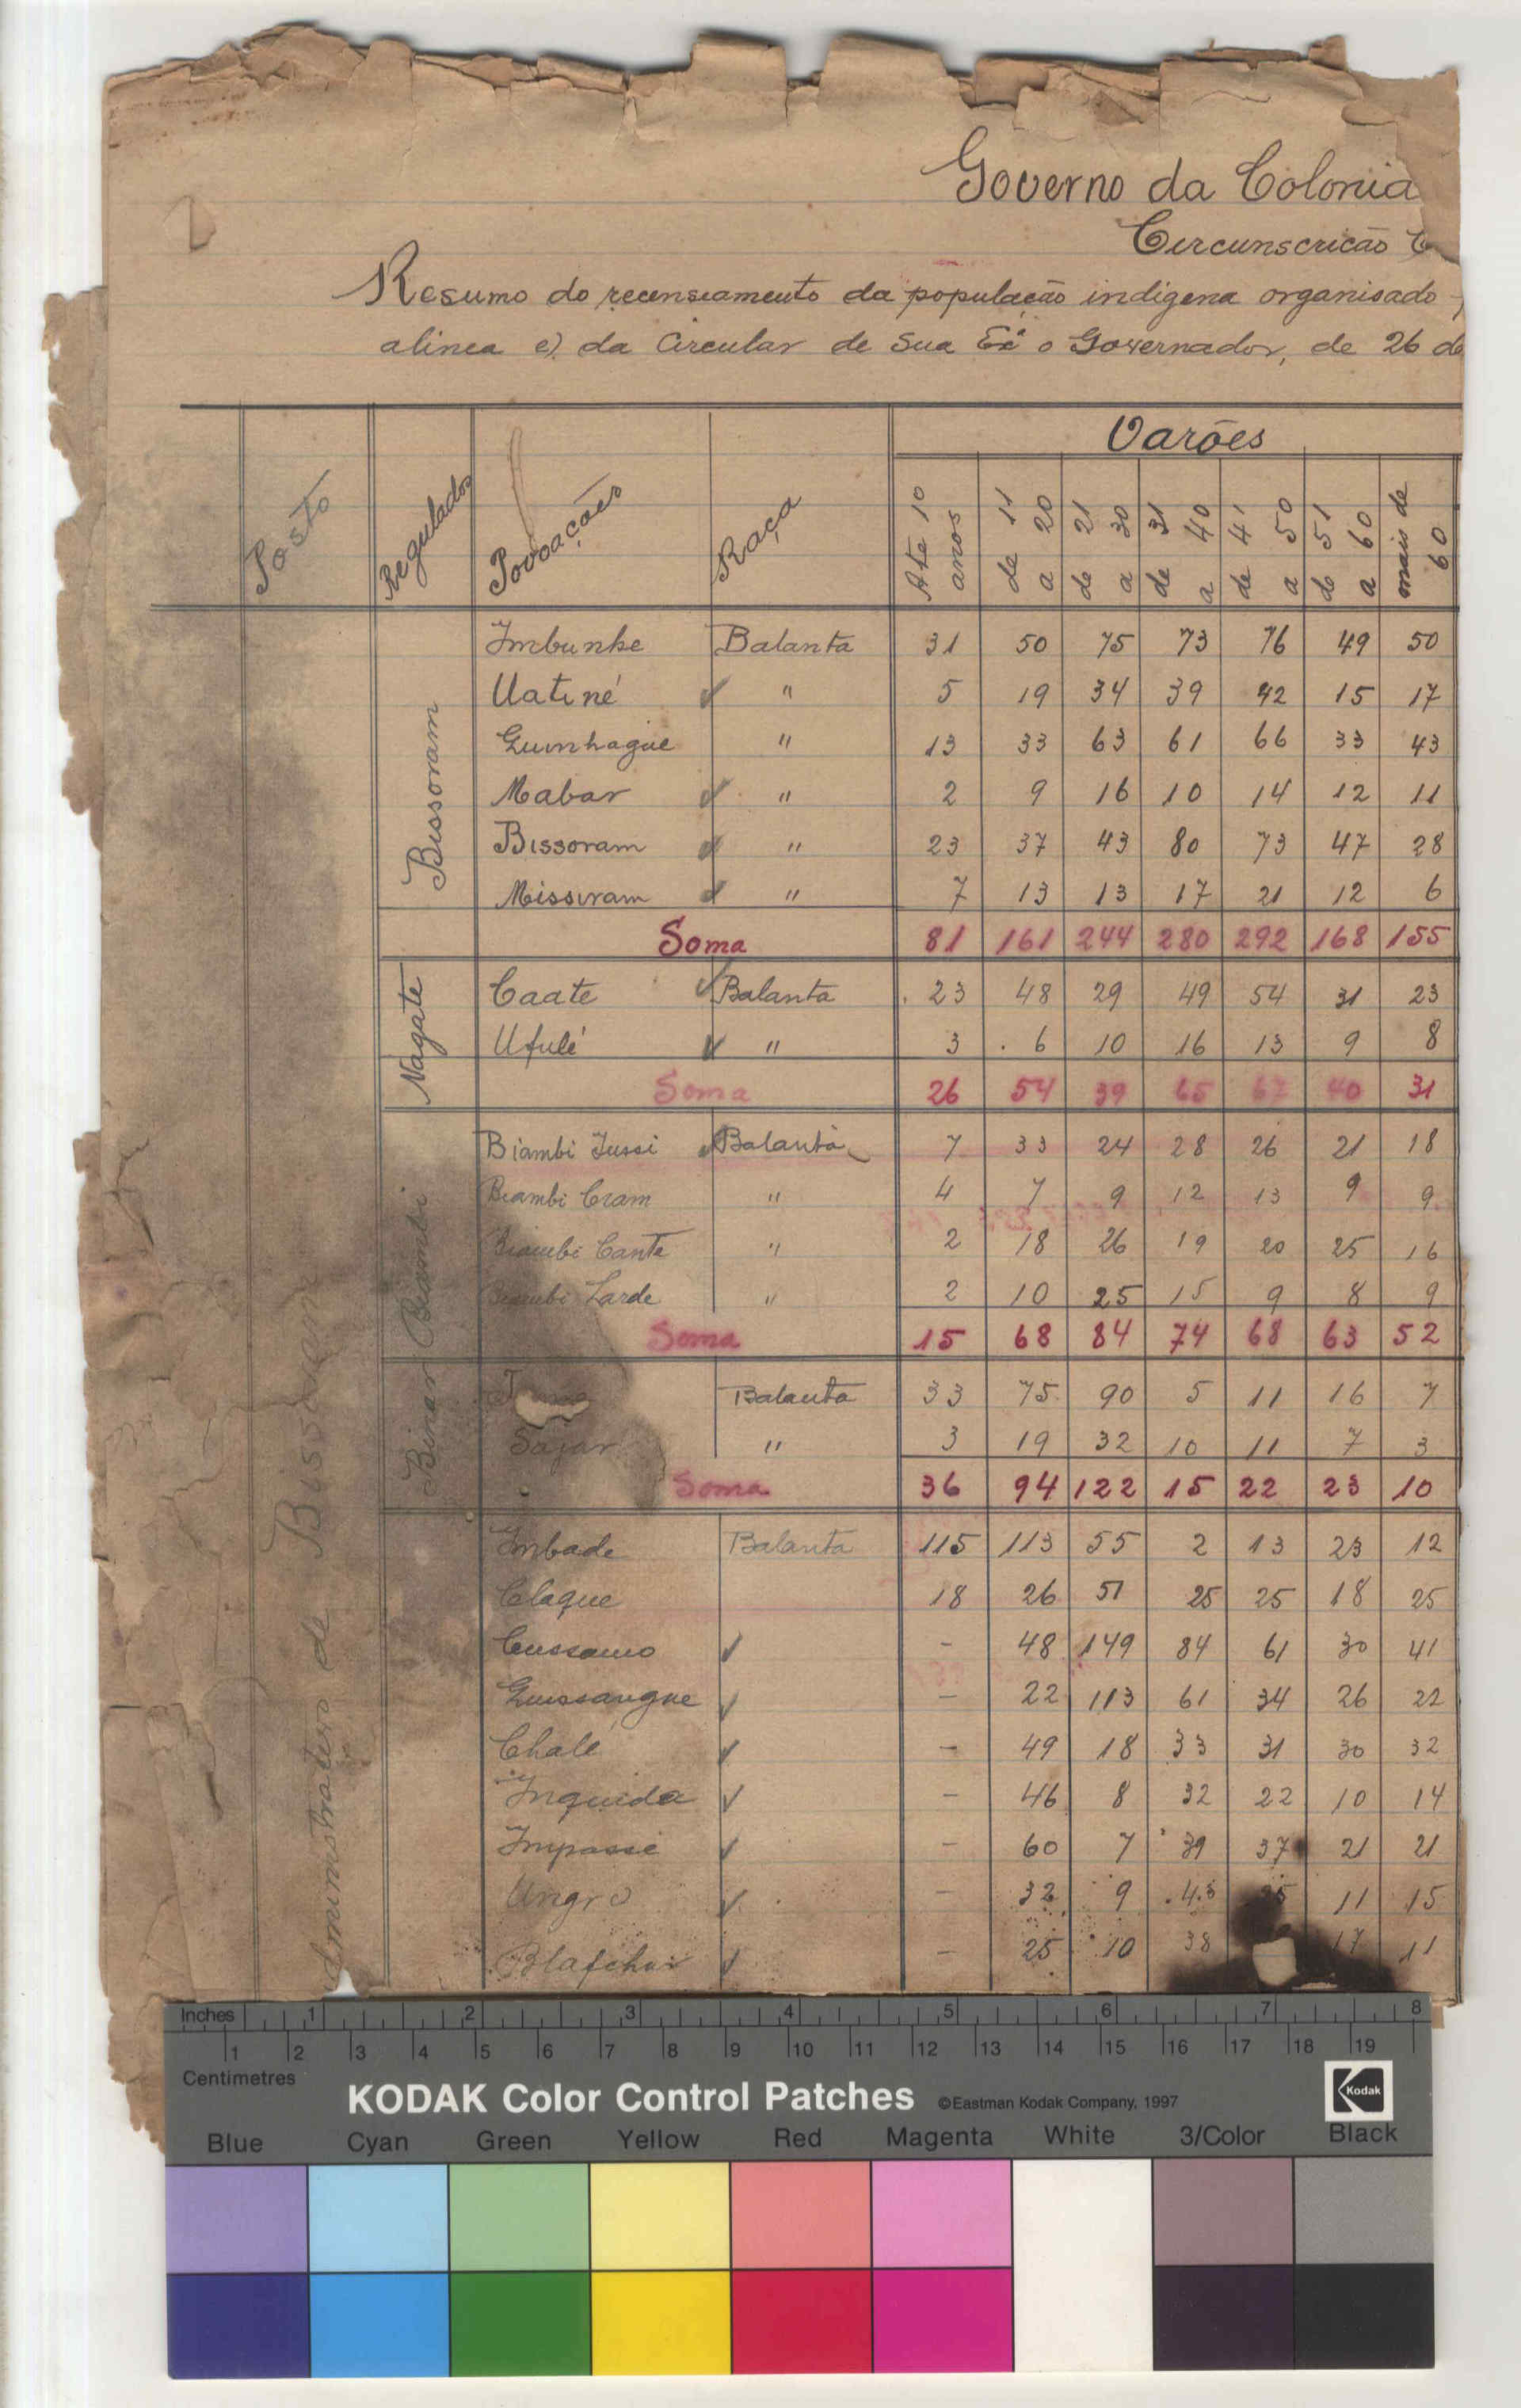 Governo da Colonia
Circunscricão
Resumo do recenseamento da população indigena organisado
alinea e) da Circular de Sua Exª o Governador, de 26 de
Varões
Posto Regulados Povoações Raça Ate 10 anos de 11 a 20 de 21 a 30 de 31 a 40 de 41 a 50 de 51 a 60 mais de 60
Administrativo de Bissoram
Bissoram
Imbunhe Balanta 31 50 75 73 76 49 50
Uatiné " 5 19 34 39 42 15 17
Quinhaque " 13 33 63 61 66 33 43
Mabar " 2 9 16 10 14 12 11
Bissoram " 23 37 43 80 73 47 28
Missiram " 7 13 13 17 21 12 6
Soma 81 161 244 280 292 168 155
Nagate
Caate Balanta 23 48 29 49 54 31 23
Ufulé " 3 6 10 16 13 9 8
Soma 26 54 39 65 67 40 31
Biambi
Biambi Iussi Balanta 7 33 24 28 26 21 18
Biambi Cram " 4 7 9 12 13 9 9
Biambi Cante " 2 18 26 19 20 25 16
Biambi Larde " 2 10 25 15 9 8 9
Soma 15 68 84 74 68 63 52
Binar
Balanta 33 75 90 5 11 16 7
Sajar " 3 19 32 10 11 7 3
Soma 36 94 122 15 22 23 10
Imbade Balanta 115 113 55 2 13 23 12
Claque 18 26 51 25 25 18 25
Cussamo - 48 149 84 61 30 41
Quissangue - 22 113 61 34 26 22
Chalé - 49 18 33 31 30 32
Inquida - 46 8 32 22 10 14
Impasse - 60 7 39 37 21 21
Ungro - 32 9 43 11 15
Blafchur - 25 10 38 17 11
Inches 1 2 3 4 5 6 7 8
1 2 3 4 5 6 7 8 9 10 11 12 13 14 15 16 17 18 19
Centimetres
KODAK Color Control Patches ©Eastman Kodak Company, 1997 Kodak
Blue Cyan Green Yellow Red Magenta White 3/Color Black